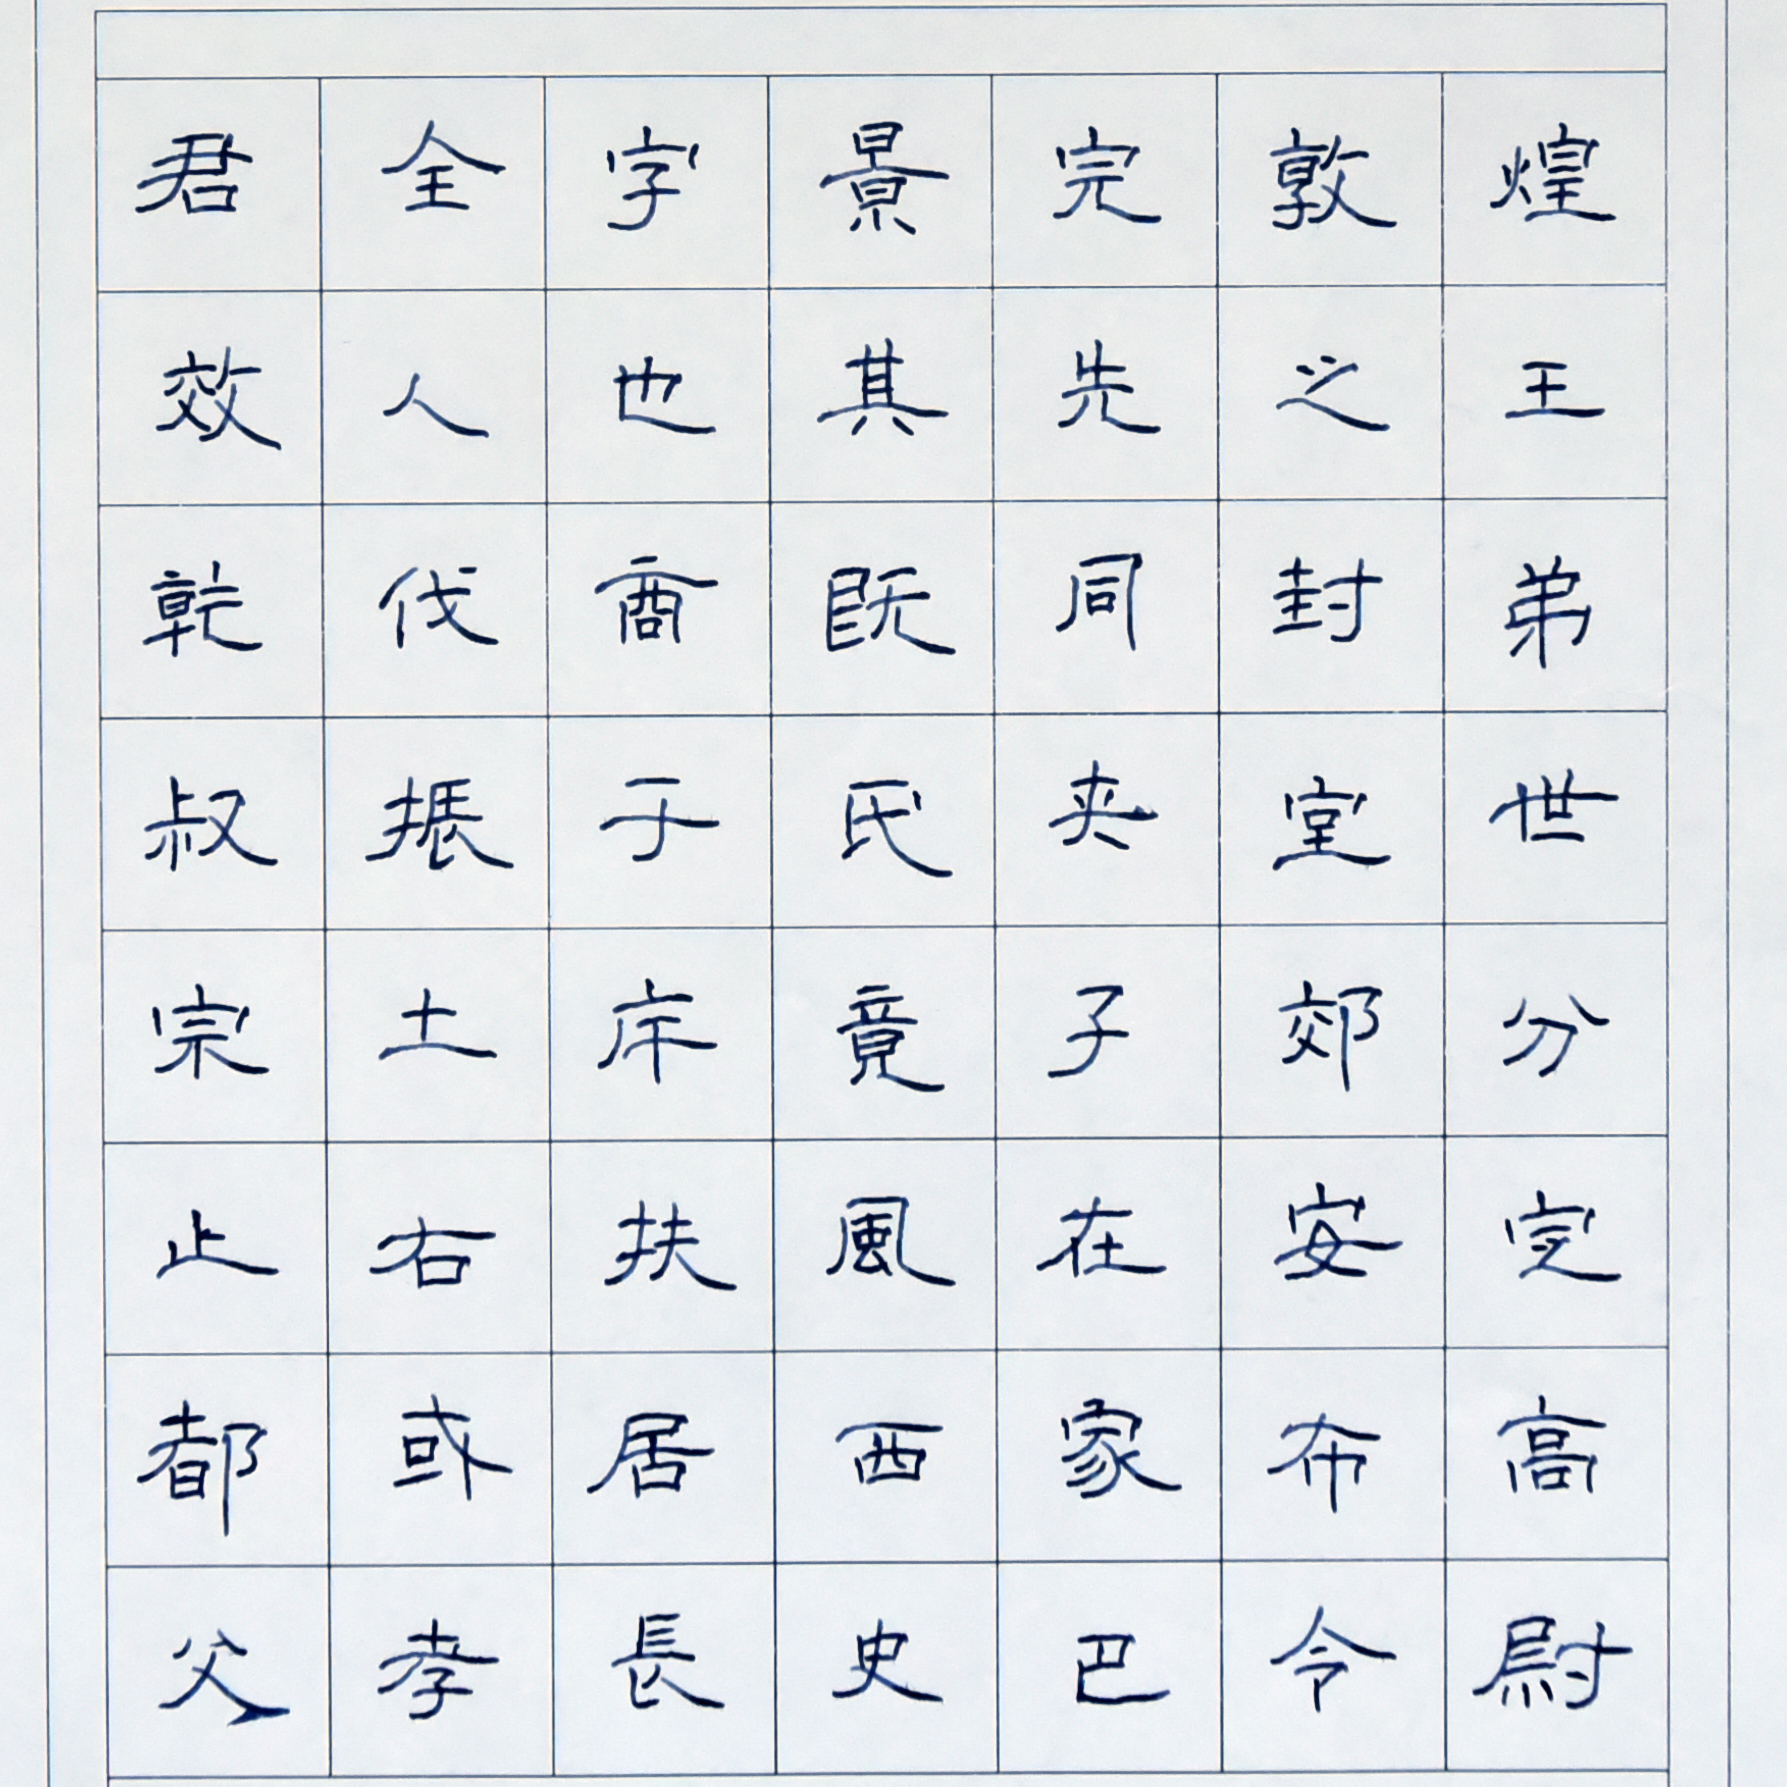 君全字景完敦煌
效人也其先之王
乾伐商既同封弟
叔振于氏夾室世
宗土斥竟子郊分
止右扶風在安定
都或居西家布高
父孝長史巴令尉